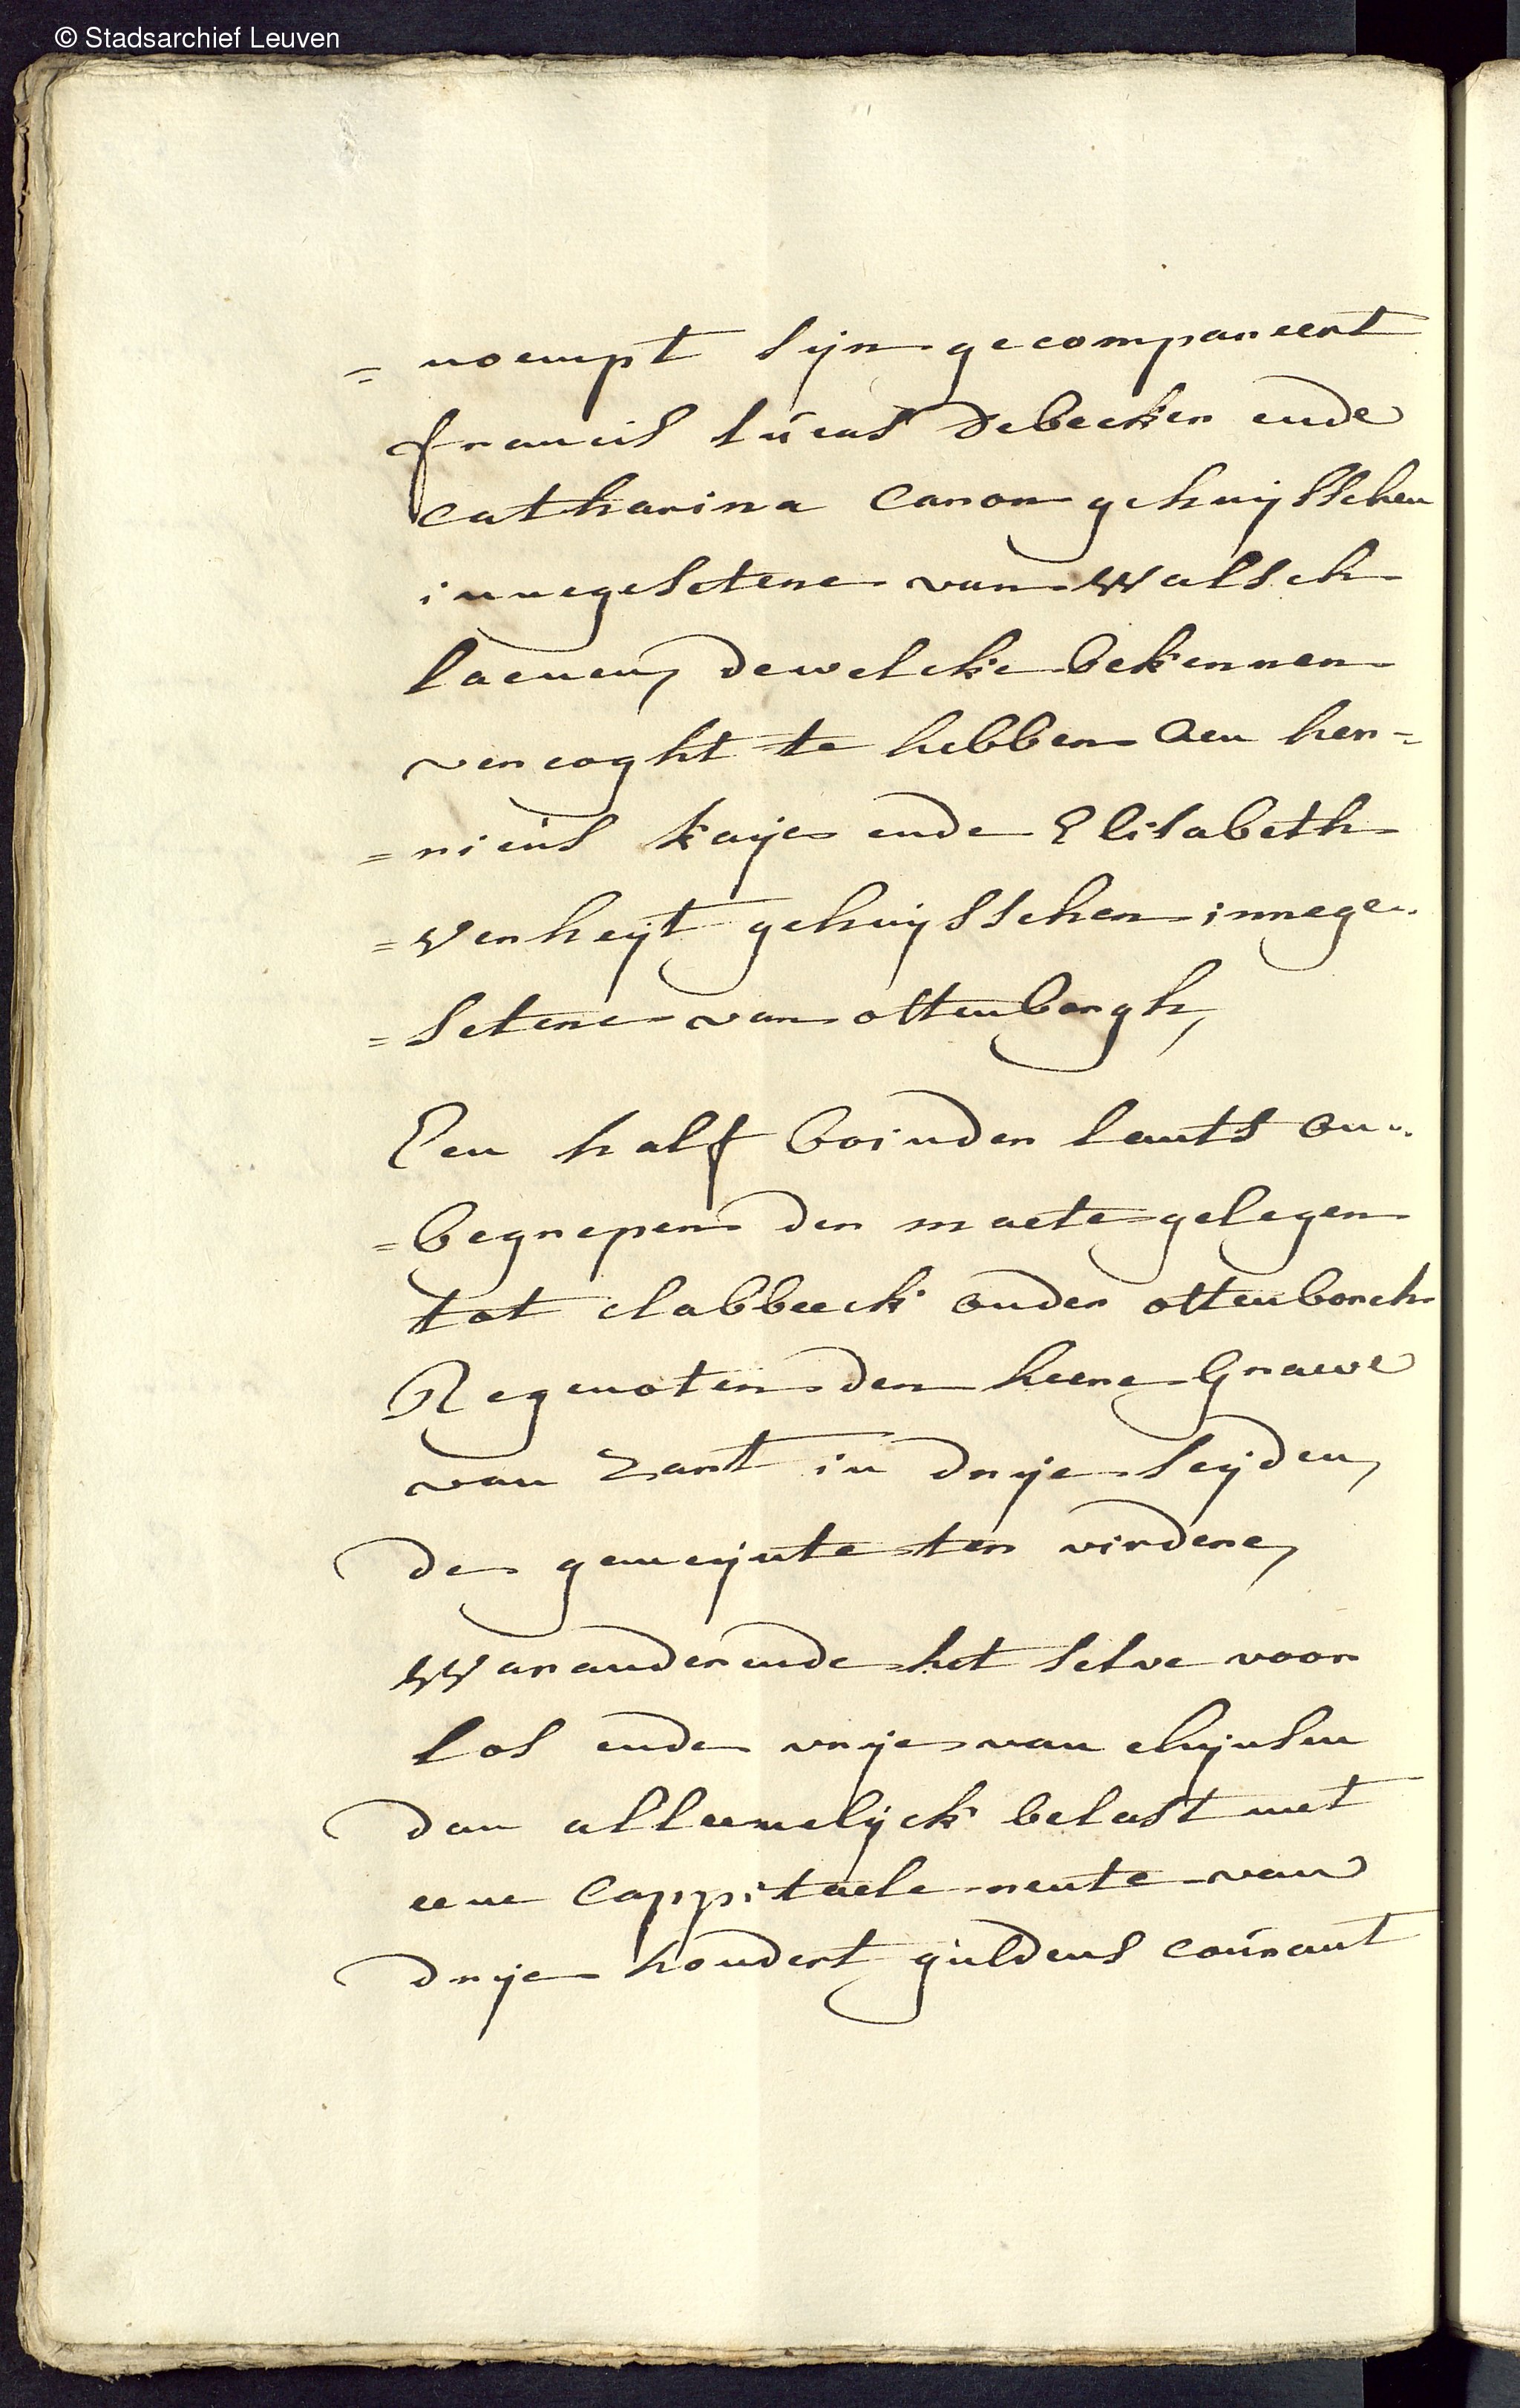 © Stadsarchief Leuven
= noempt sijn gecompareert
francis lucas Debecker ende
Catharina Canon gehuijsschen
innegesetene van Walsch
laenen, dewelcke bekennen
vercoght te hebben aen hen=
=ricus kaije ende Elisabeth
=verheijt gehuijsschen innege=
=setene van ottenborgh,
Een half boinder lants on=
=begrepen der maete gelegen
tot clabbeeck onder ottenborch
Regenoten den heere Graeve
van Zart in drije seijden,
de gemeijnte ter vierdere,
Waranderende het selve voor
los ende vrije van chijnsen
dan alleenelijck belast met
eene Cappitaele rente van
drije hondert guldens courant